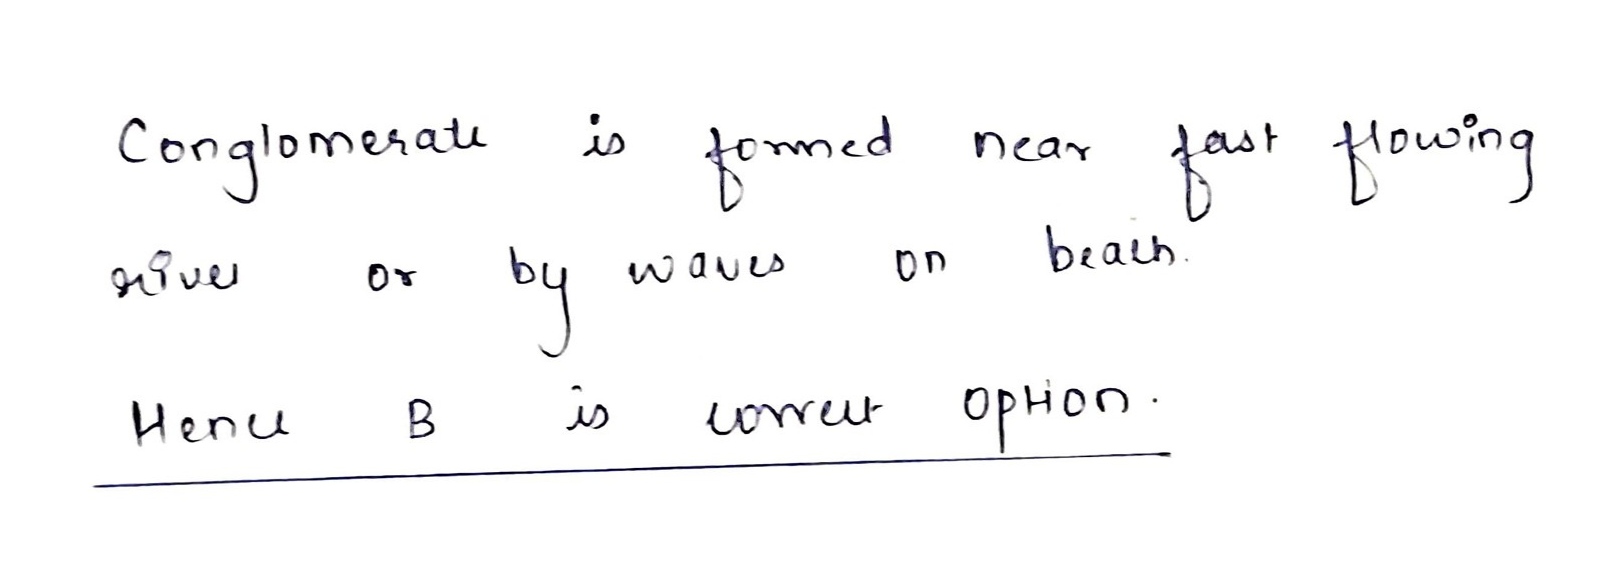 Conglomerate is formed near fast flowing
river or by waves on beach.
Hence B is correct option.